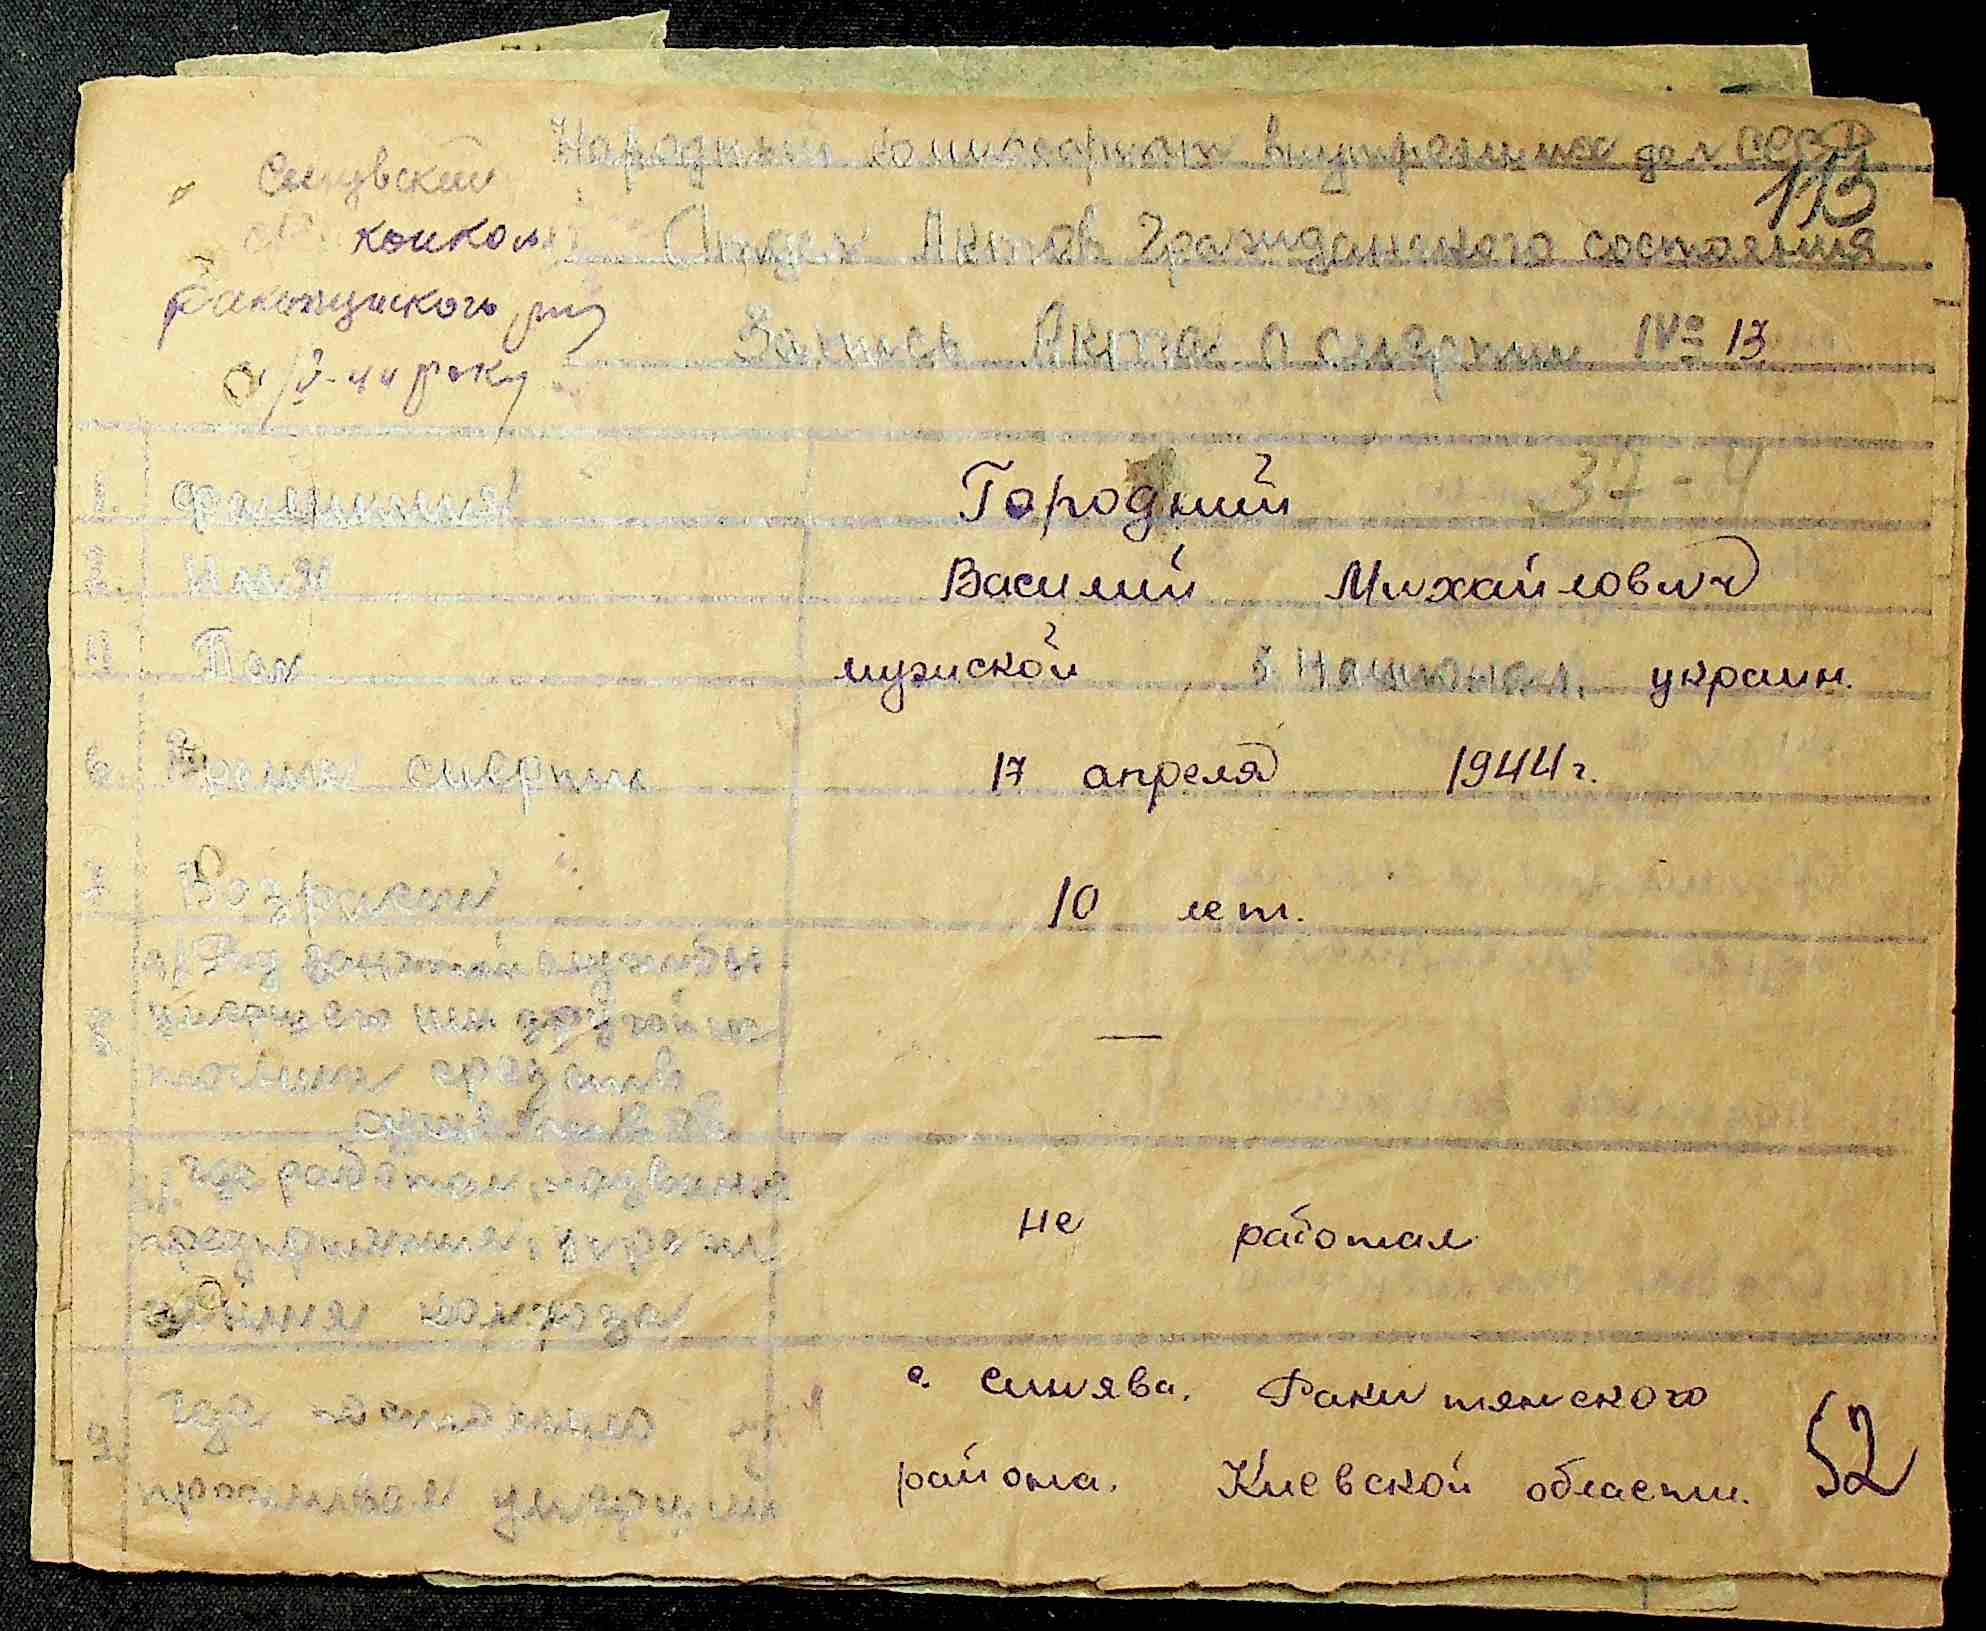 Народный комиссариат внутренних дел СССР
113
Отдел Актов Гражданского состояния
Запись Акта о смерти № 13
1. Фамилия Городний 37-4
2. Имя Василий Михайлович
4. Пол мужской 5. Национал. украин.
6. Время смерти 17 апреля 1944 г.
7 Возраст 10 лет.
8 а) Род занятий службы
умершего или другой ис
точник средств —
существов
где работал, название
предприятия, учреж не работал
колхоза
9. где постоянно с. Синява. Ракитянского
проживал умерший района. Киевской области. 52